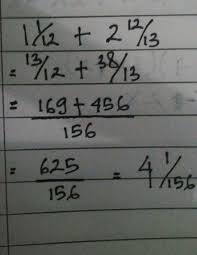 1 1/12 + 2 12/13
= 13/12 + 38/13
= 169 + 456 / 156
= 625 / 156 = 4 1/156